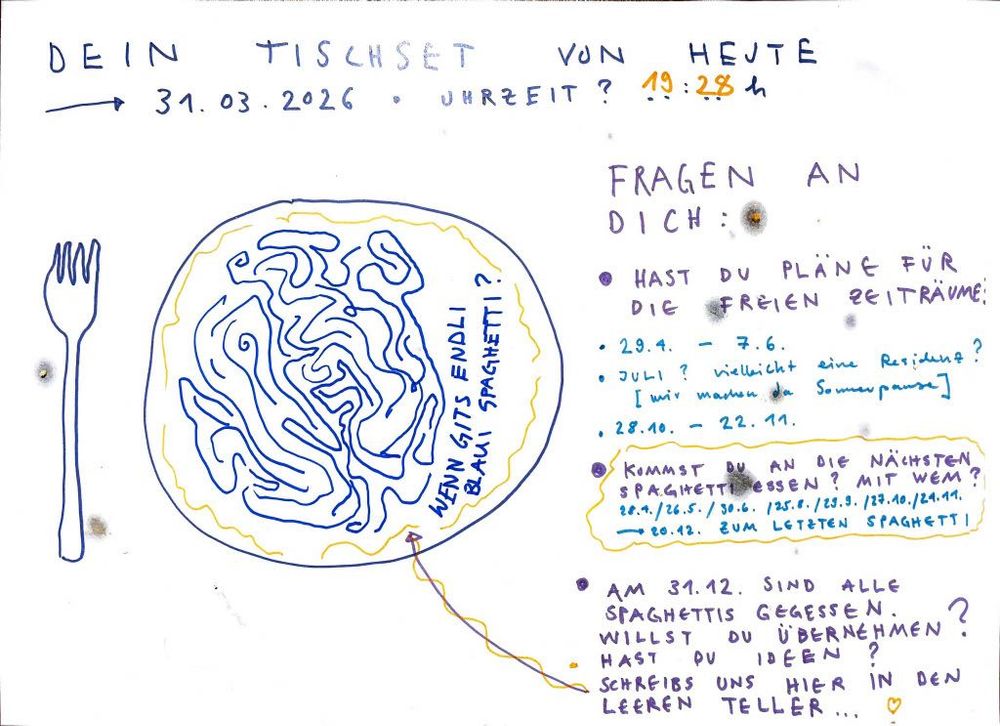 DEIN TISCHSET VON HEUTE
→ 31.03.2026 • UHRZEIT? 19:28h
WENN GITS ENDLI
BLAUI SPAGHETTI?
FRAGEN AN
DICH:
• HAST DU PLÄNE FÜR
DIE FREIEN ZEITRÄUME:
• 29.4. – 7.6.
• JULI? vielleicht eine Residenz?
[wir machen da Sommerpause]
• 28.10. – 22.11.
• KOMMST DU AN DIE NÄCHSTEN
SPAGHETTI ESSEN? MIT WEM?
28.4./26.5./30.6./25.8./29.9./27.10./24.11.
→ 20.12. ZUM LETZTEN SPAGHETTI
• AM 31.12. SIND ALLE
SPAGHETTIS GEGESSEN.
WILLST DU ÜBERNEHMEN?
HAST DU IDEEN?
SCHREIBS UNS HIER IN DEN
LEEREN TELLER... ♡